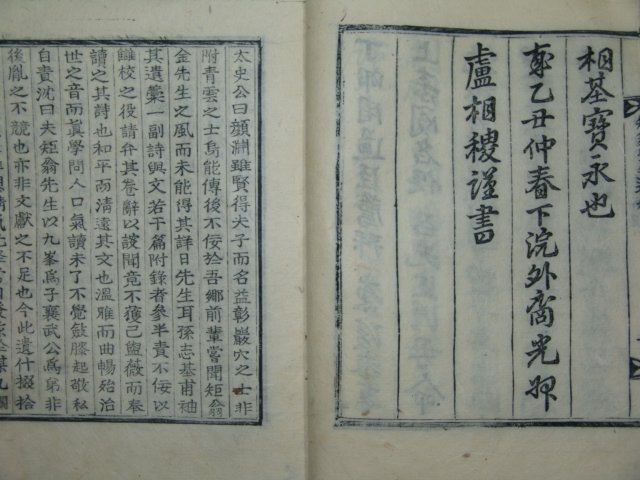 相基寶永也
乙丑仲春下浣外裔光州
盧相稷謹書
太史公曰顔淵雖賢得夫子而名益彰巖穴之士非
附青雲之士烏能傳後不佞於吾鄉前輩嘗聞矩翁
金先生之風而未能得其詳日先生耳孫志基甫袖
其遺稾一副詩與文若干篇附錄者參半責不佞以
讎校之役請弁其卷辭以謏聞竟不獲已盥薇而奉
讀之其詩也和平而清遠其文也溫雅而曲暢殆治
世之音而眞學問人口氣讀未了不覺斂膝起敬私
自責沈曰夫矩翁先生以九峯爲子襄武公爲弟非
後胤之不競也亦非文獻之不足也今此遺什掇拾